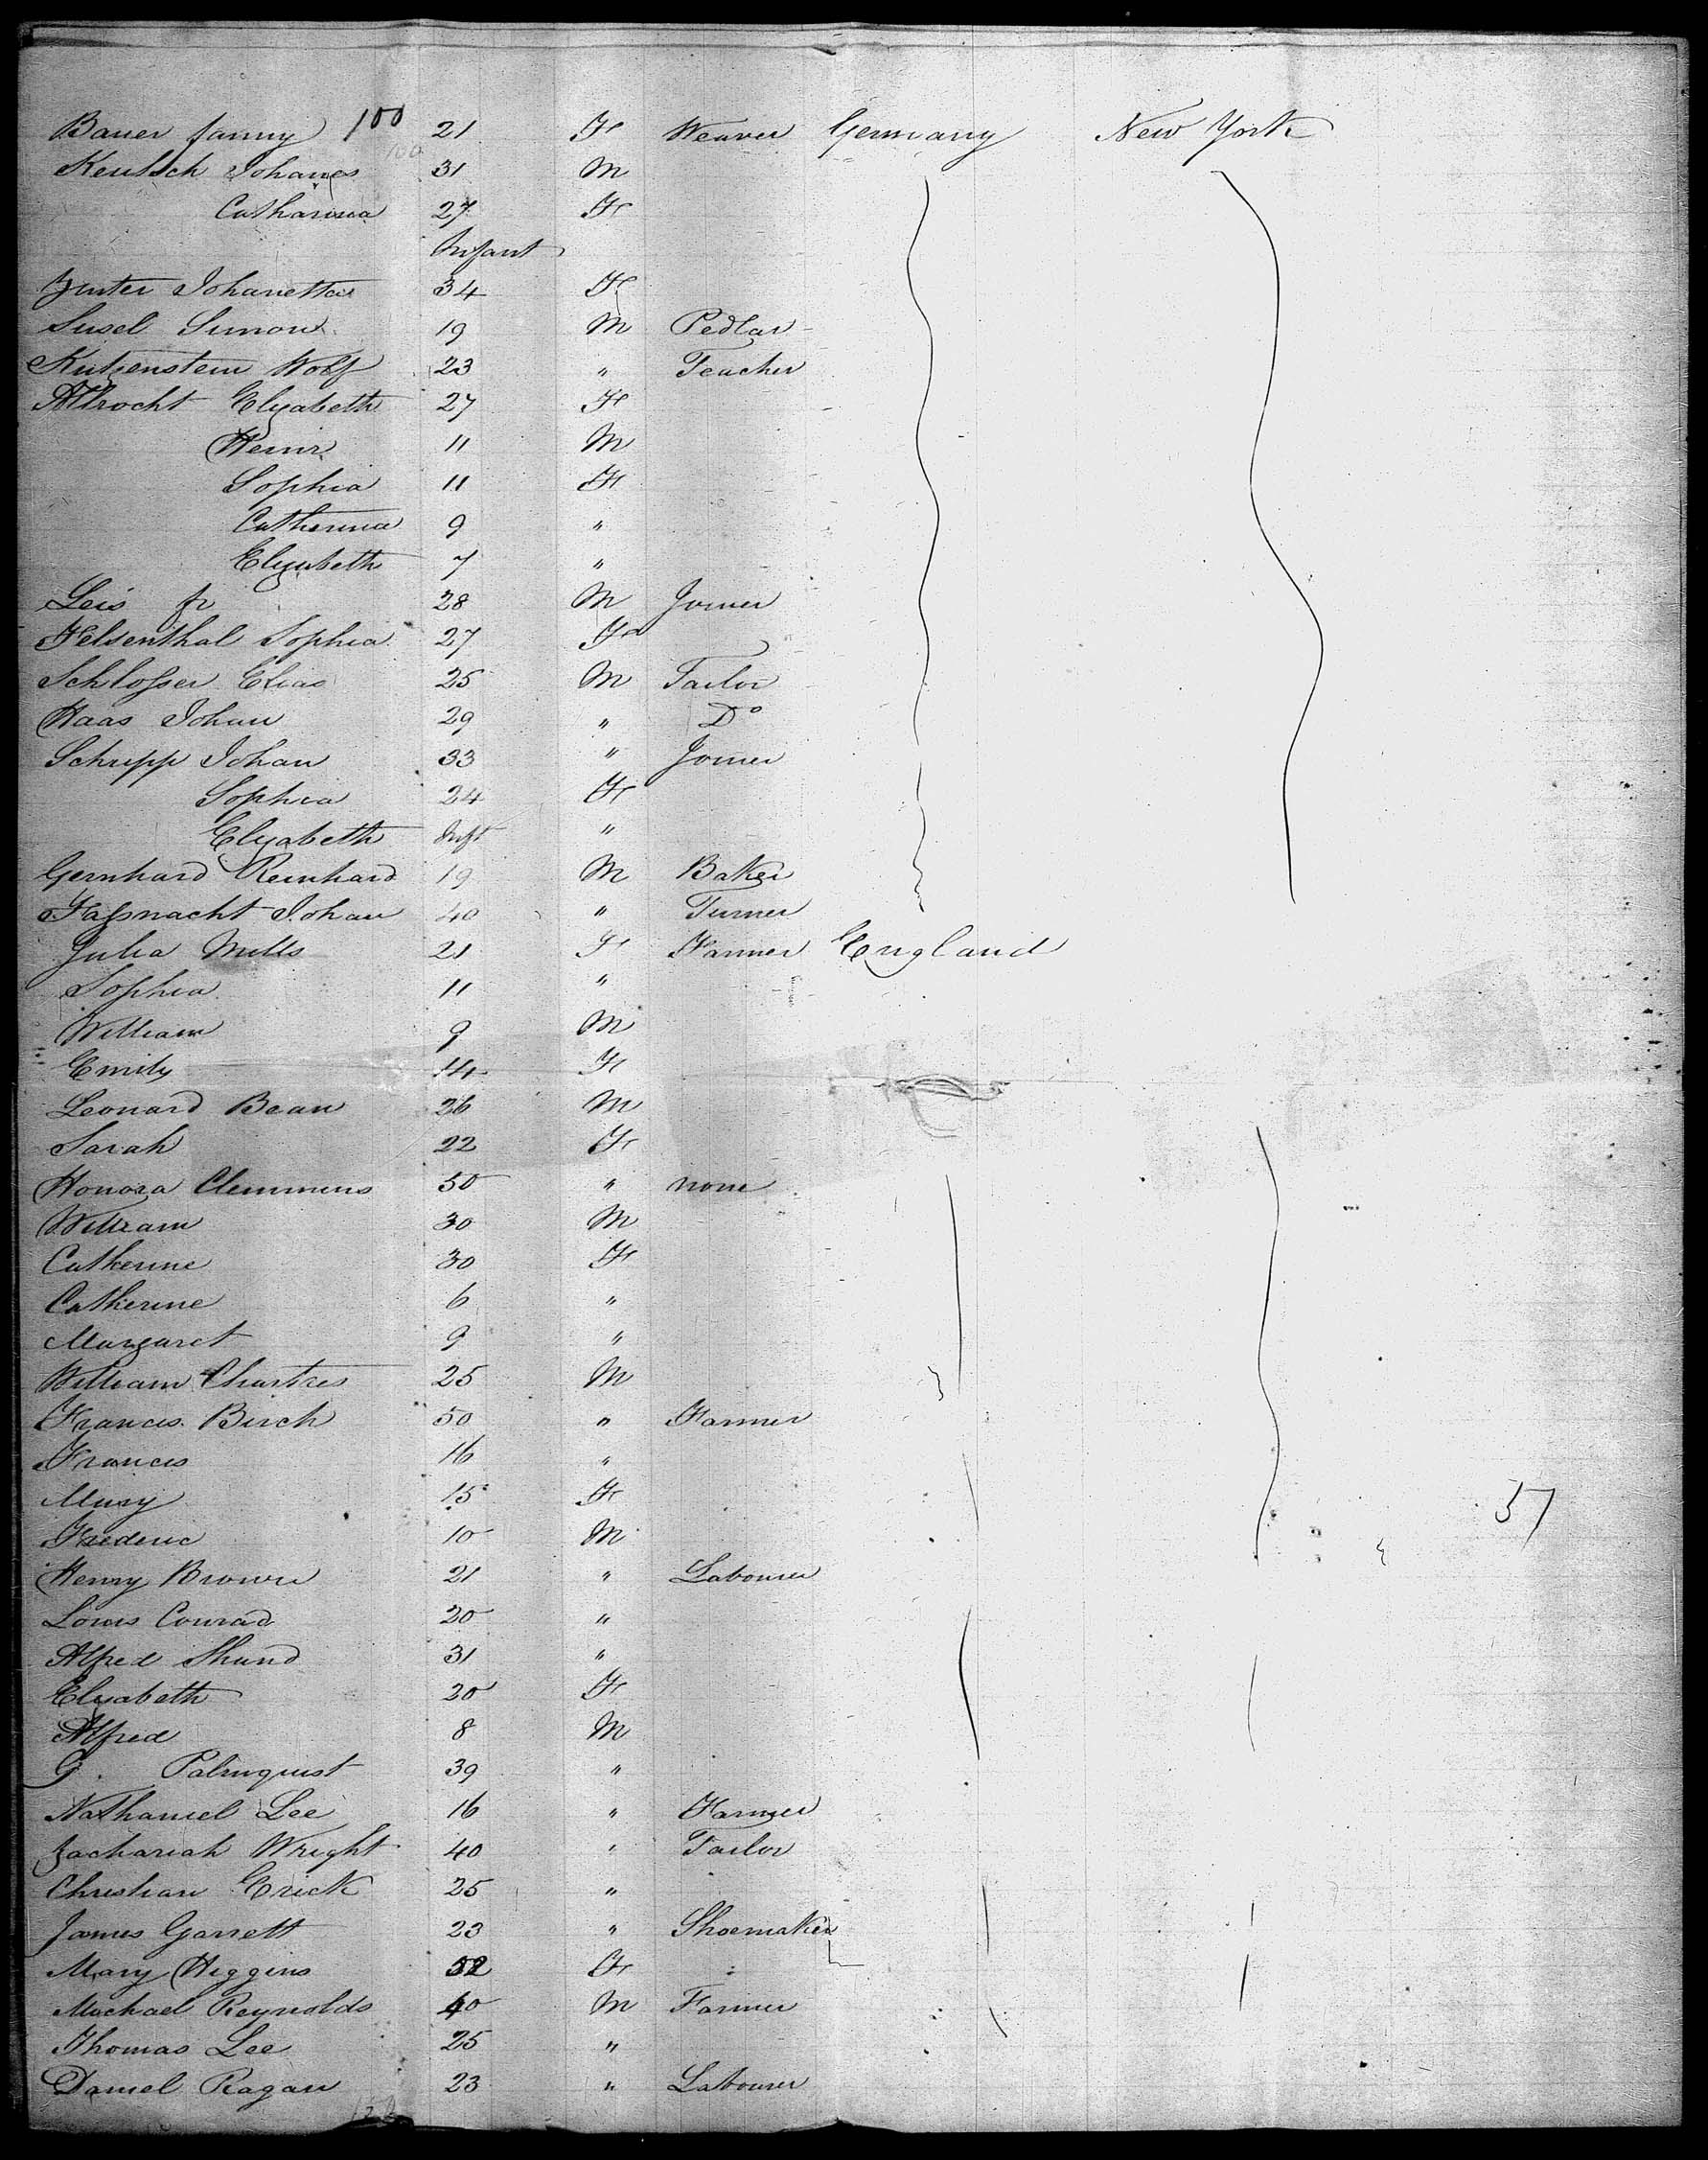 Bauer fanny 100 21 F Weaver Germany New York
Keutsch Johanes 31 M
Catharina 27 F
Infant
Johanetta 34 F
Susel Simon 19 M Pedlar
Katzenstein Wolf 23 " Teacher
Albrocht Elizabeth 27 F
Heinr 11 M
Sophia 11 F
Catherina 9 "
Elizabeth 7 "
Leis fr 28 M Joiner
Felsenthal Sophia 27 F
Schlosser Elias 25 M Tailor
Haas Johan 29 " Do
Schupp Johan 33 " Joiner
Sophia 24 F
Elizabeth Inft "
Gernhard Reinhard 19 M Baker
Fassnacht Johan 40 " Turner
Julia Mills 21 F Farmer England
Sophia 11 "
William 9 M
Emily 14 F
Leonard Bean 26 M
Sarah 22 F
Honora Clemmens 50 " none
William 30 M
Catherine 30 F
Catherine 6 "
Margaret 9 "
William Chartres 25 M
Francis Birch 50 " Farmer
Francis 16 "
Mary 15 F
57
Frederic 10 M
Henry Brown 21 " Labourer
Louis Conrad 20 "
Alfred Shund 31 "
Elizabeth 20 F
Alfred 8 M
G. Palmquist 39 "
Nathaniel Lee 16 " Farmer
Zachariah Wright 40 " Tailor
Christian Erick 25 "
James Garrett 23 " Shoemaker
Mary Higgins 52 F
Michael Reynolds 40 M Farmer
Thomas Lee 25 "
Daniel Ragan 23 " Labourer